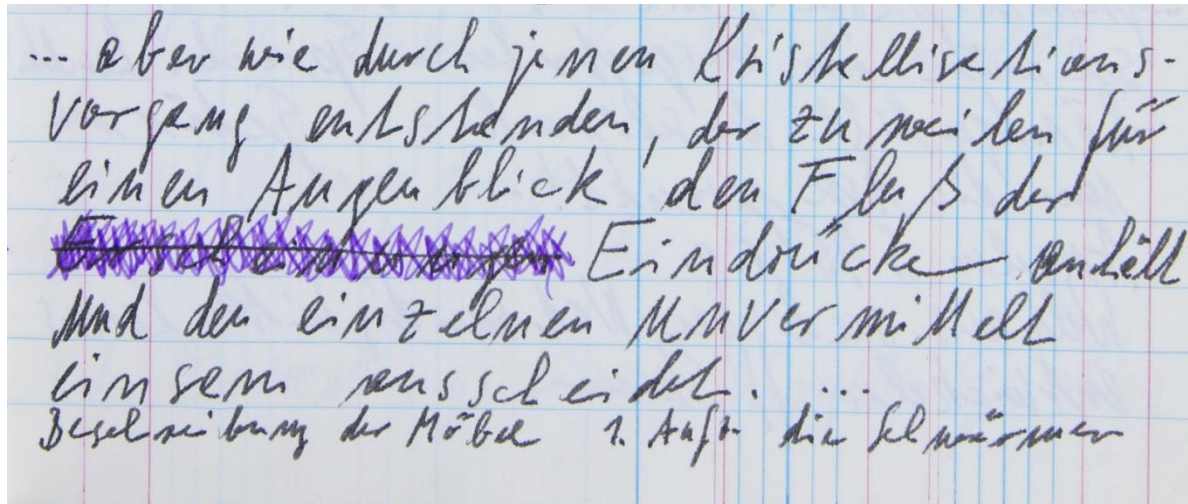 ... aber wie durch jenen Kristallisations-
vorgang entstanden, der zuweilen für
einen Augenblick den Fluß der
Eindrücke anhält
und den einzelnen unvermittelt
einsam ausscheidet. ...
Beschreibung der Möbel 1. Aufz. die Schwärmer